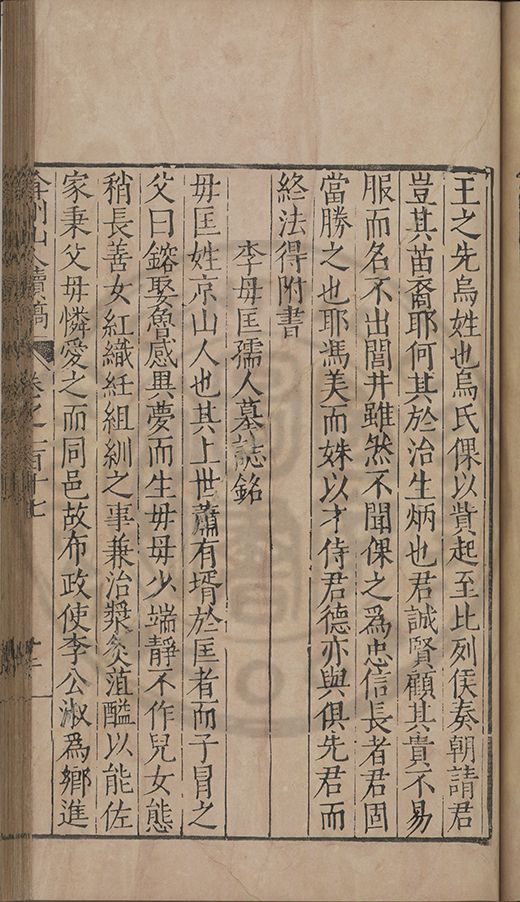 王之先烏姓也烏氏倮以貲起至比列侯奏朝請君
豈其苗裔耶何其於治生炳也君誠賢顧其貴不易
服而名不出閭井雖然不聞倮之爲忠信長者君固
當勝之也耶馮美而姝以才侍君德亦與俱先君而
終法得附書
李母匡孺人墓誌銘
毋匡姓京山人也其上世蕭有壻於匡者而子冒之
父曰鎔娶魯感異夢而生毋毋少端靜不作兒女態
稍長善女紅織紝組紃之事兼治漿灸菹醢以能佐
家秉父毋憐愛之而同邑故布政使李公淑爲鄉進
弇州山人續稿 卷之一百十七